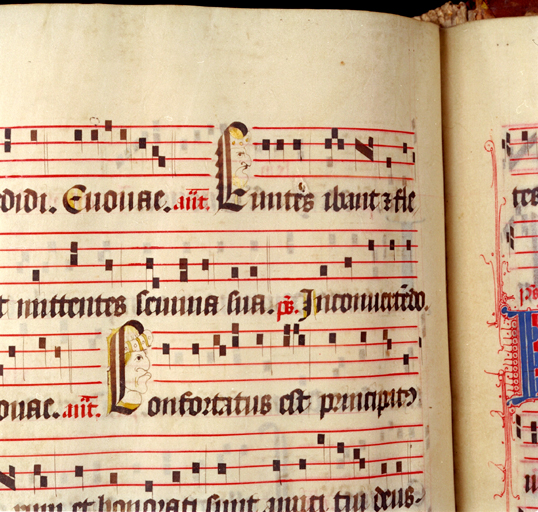 didi. Euouae. añt. Euntes ibant ⁊ fle
t mittentes semina sua. ps̄. In conuertēdo.
ouae. añt. Confortatus est principatꝰ
et honorati sunt amici tui deus.